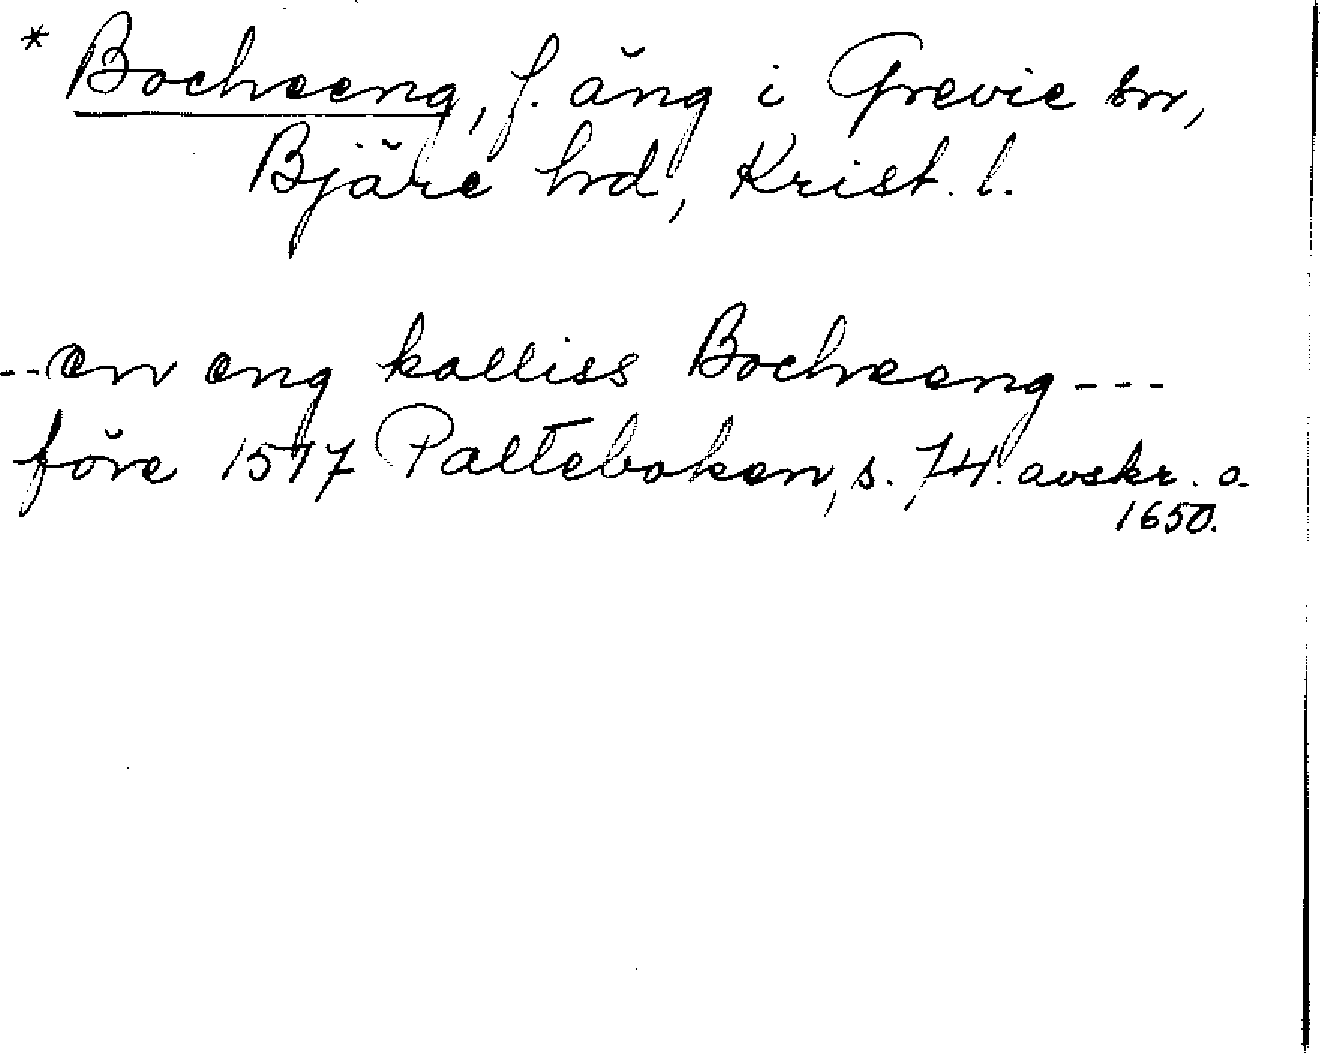 * Bocheeng, f. äng i Grevie sn,
Bjäre hrd, Krist. l.
--en eng kalliss Bocheeng---
före 1517 Palteboken, s. 74. avskr. a.
1650.